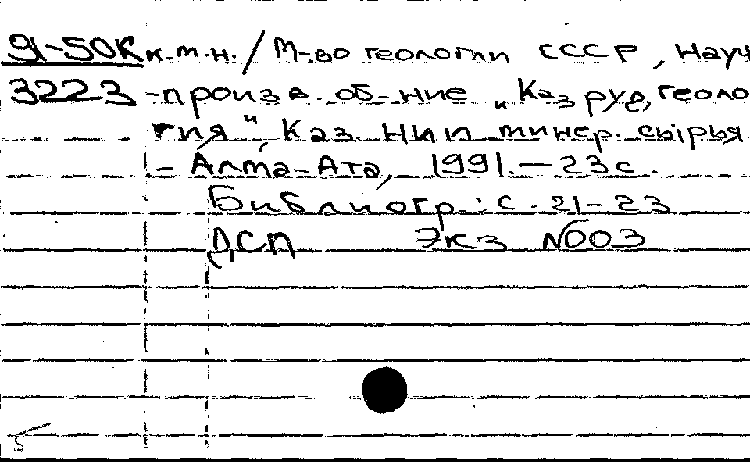 91-50К к.т.н. / М-во геологии СССР, Науч
3223 -произв. об-ние „Казрудгеоло
гия", Каз. НИИ минер. сырья
- Алма-Ата, 1991. - 23 с.
Библиогр.: с. 21-23
ДСП Экз №003